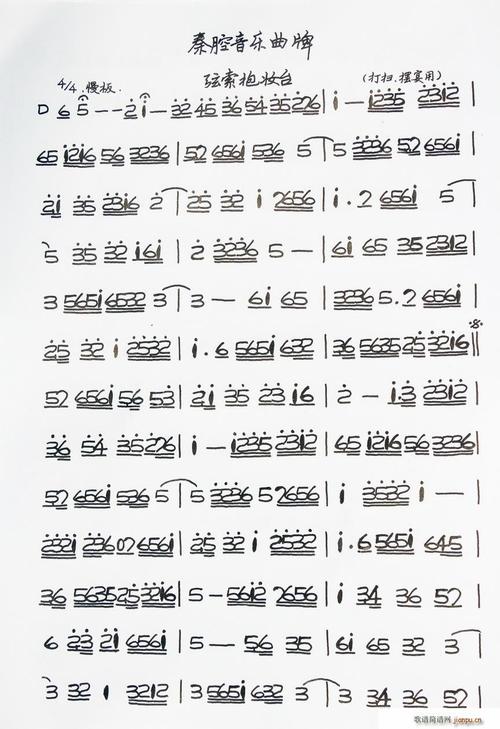 秦腔音乐曲牌
弦索抱妆台
4/4 慢板 (打扫、摆宴用)
D 6 5 - - 2 i - 32 45 36 54 35 226 | i - i235 23i2 |
65 i2i6 56 3236 | 52 656i 536 5 | 5 3236 52 656i |
2i 35 23i6 2 | 25 32 i 2656 | i . 2 656i 5 |
5 35 32 i6i | 2 3236 5 - | 6i 65 35 23i2 |
3 565i6532 3 | 3 - 6i 65 | 3236 5.2 656i |
25 32 i 2532 | i . 6 565i 632 | 36 563525 32i6 ||
52 656i 56 53 | 2i 35 23 i6 | 2 - i.3 23i2 |
36 54 35 226 | i - i235 23i2 | 65 i2i6 56 3236 |
52 656i 536 5 | 5 3236 5 2656 | i 3532 i - |
232i 223602 656i | 25 32 i 2532 | i . 6 565i 645 |
36 563525 32i6 | 5 - 56i2 2656 | i 34 36 52 |
6 23 2i 656i | 5 - 56 35 | 6i 65 32 3 |
3 32 1 32i2 | 3 565i 632 3 | 3 34 36 52 |
歌谱简谱网 jianpu.cn